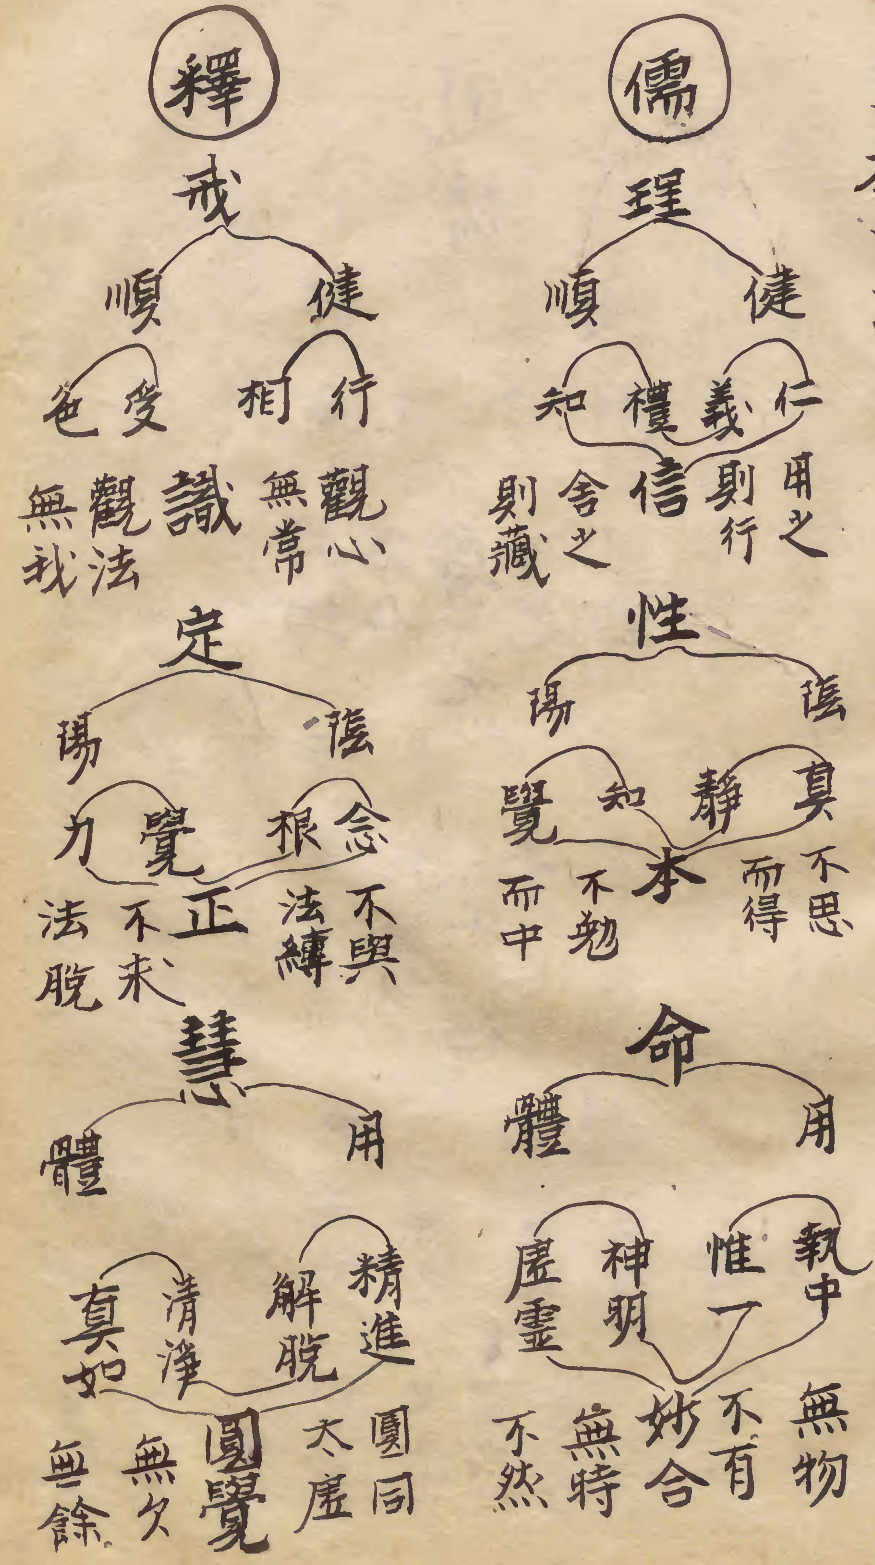 儒
理
健
順
仁
義
禮
知
信
用之
則行
舍之
則藏
性
陰
陽
真
靜
知
覺
本
不思
而得
不勉
而中
命
用
體
執中
惟一
神明
虛靈
妙合
無物
不有
無時
不然
釋
戒
健
順
行
相
受
色
識
觀心
無常
觀法
無我
定
陰
陽
念
根
覺
力
正
不與
法縛
不求
法脫
慧
用
體
精進
解脫
清淨
真如
圓覺
圓同
太虛
無欠
無餘